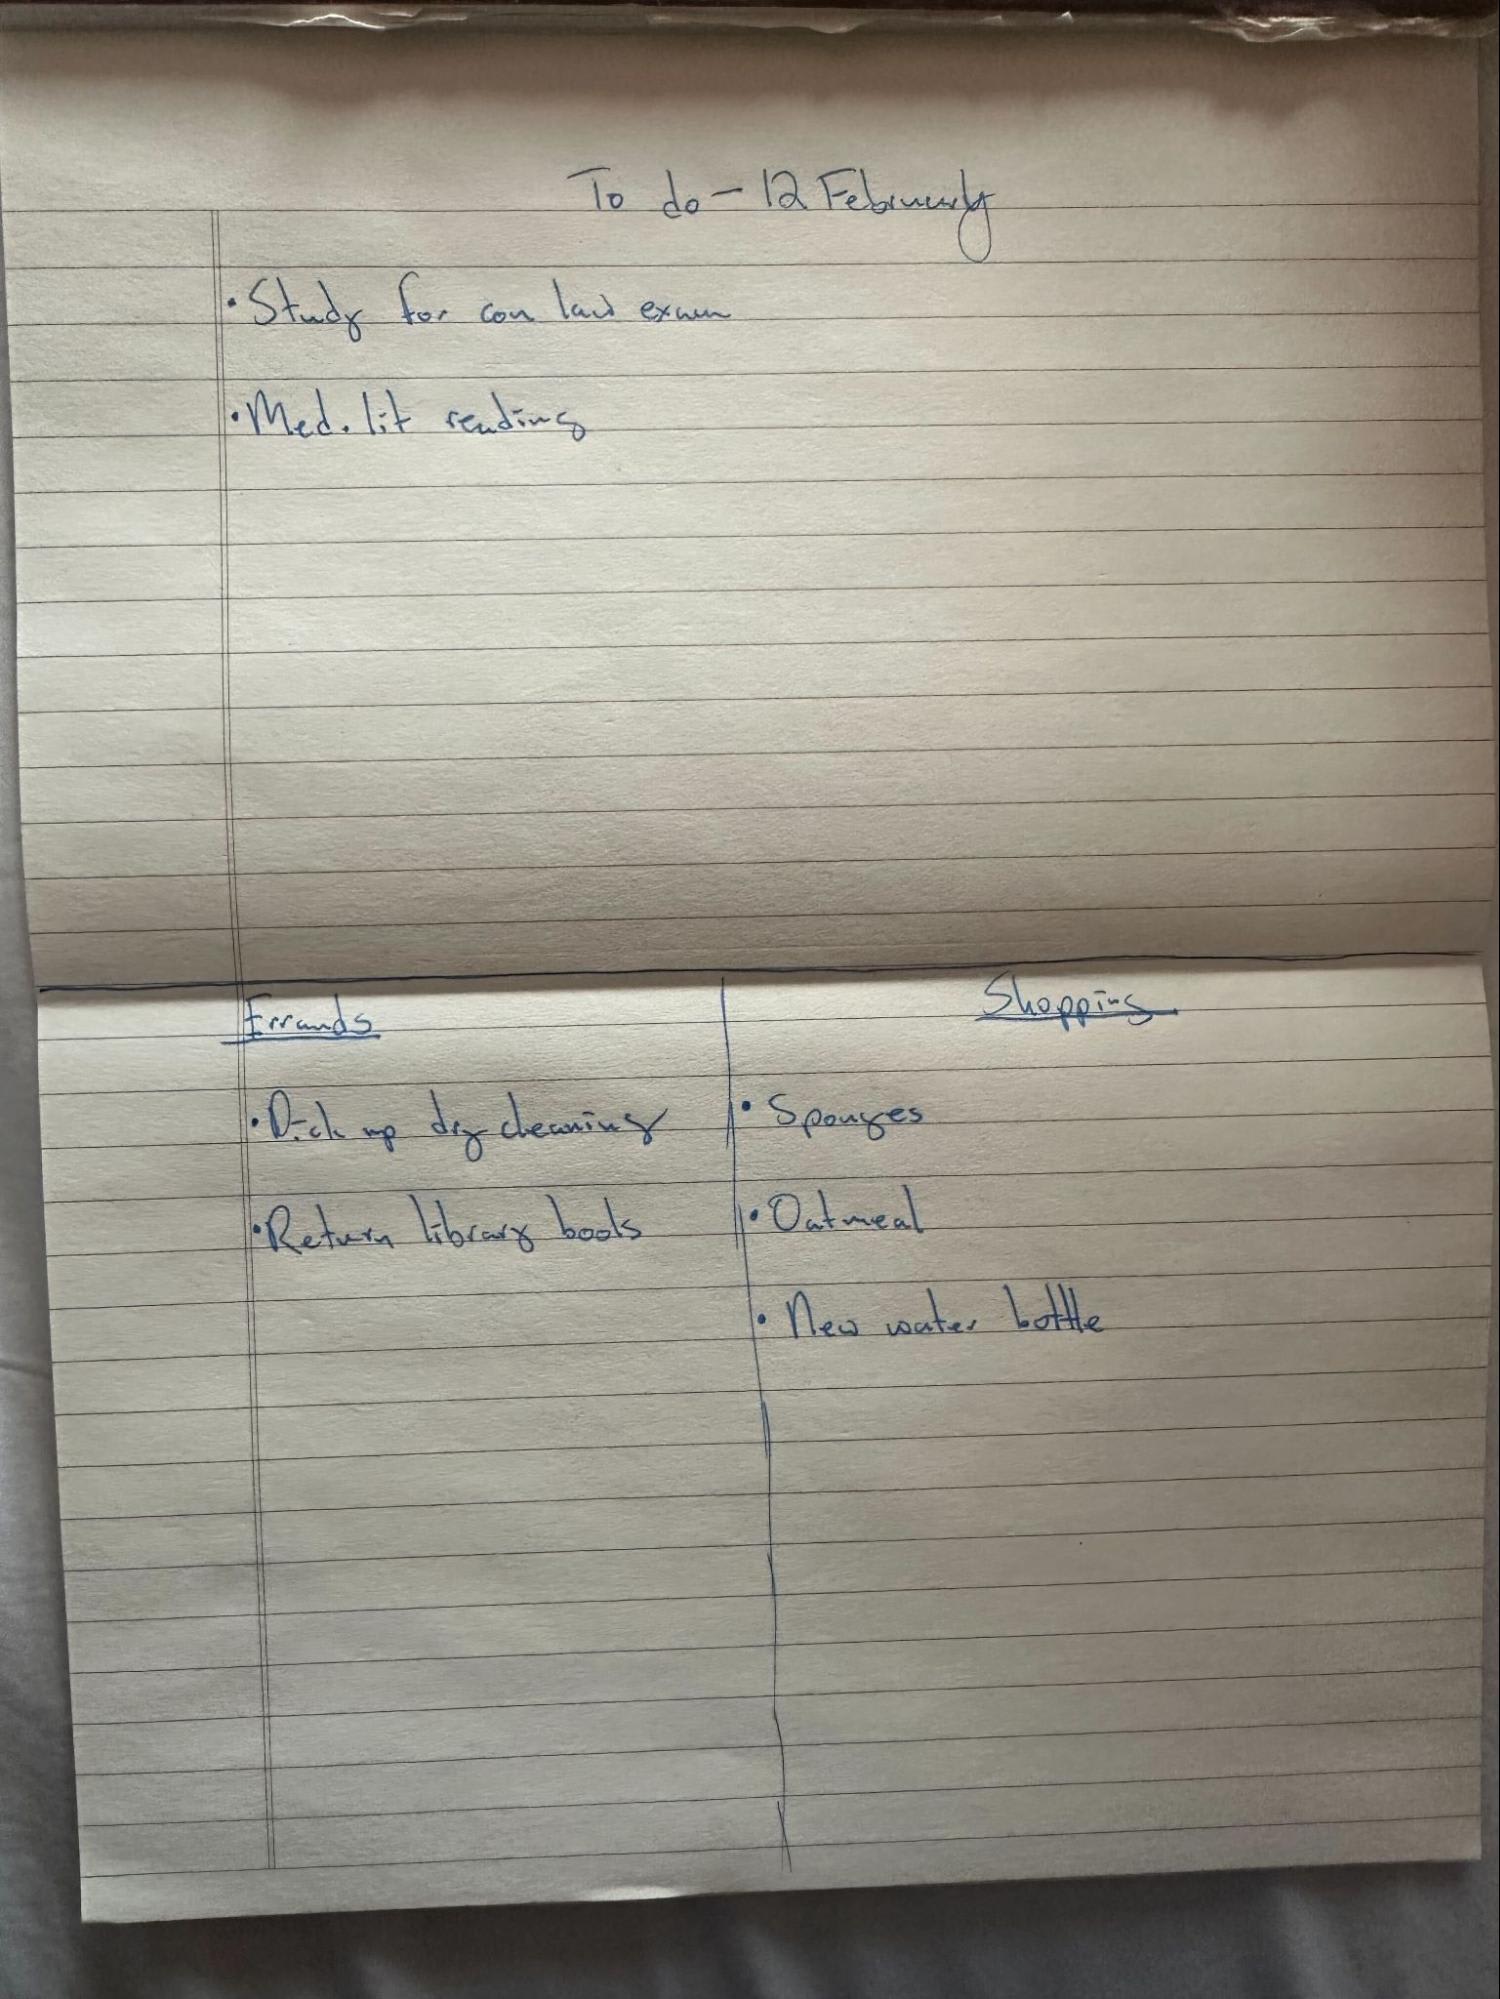 To do - 12 February
• Study for con law exam
• Med. lit reading
Errands
• Pick up dry cleaning
• Return library books
Shopping
• Sponges
• Oatmeal
• New water bottle